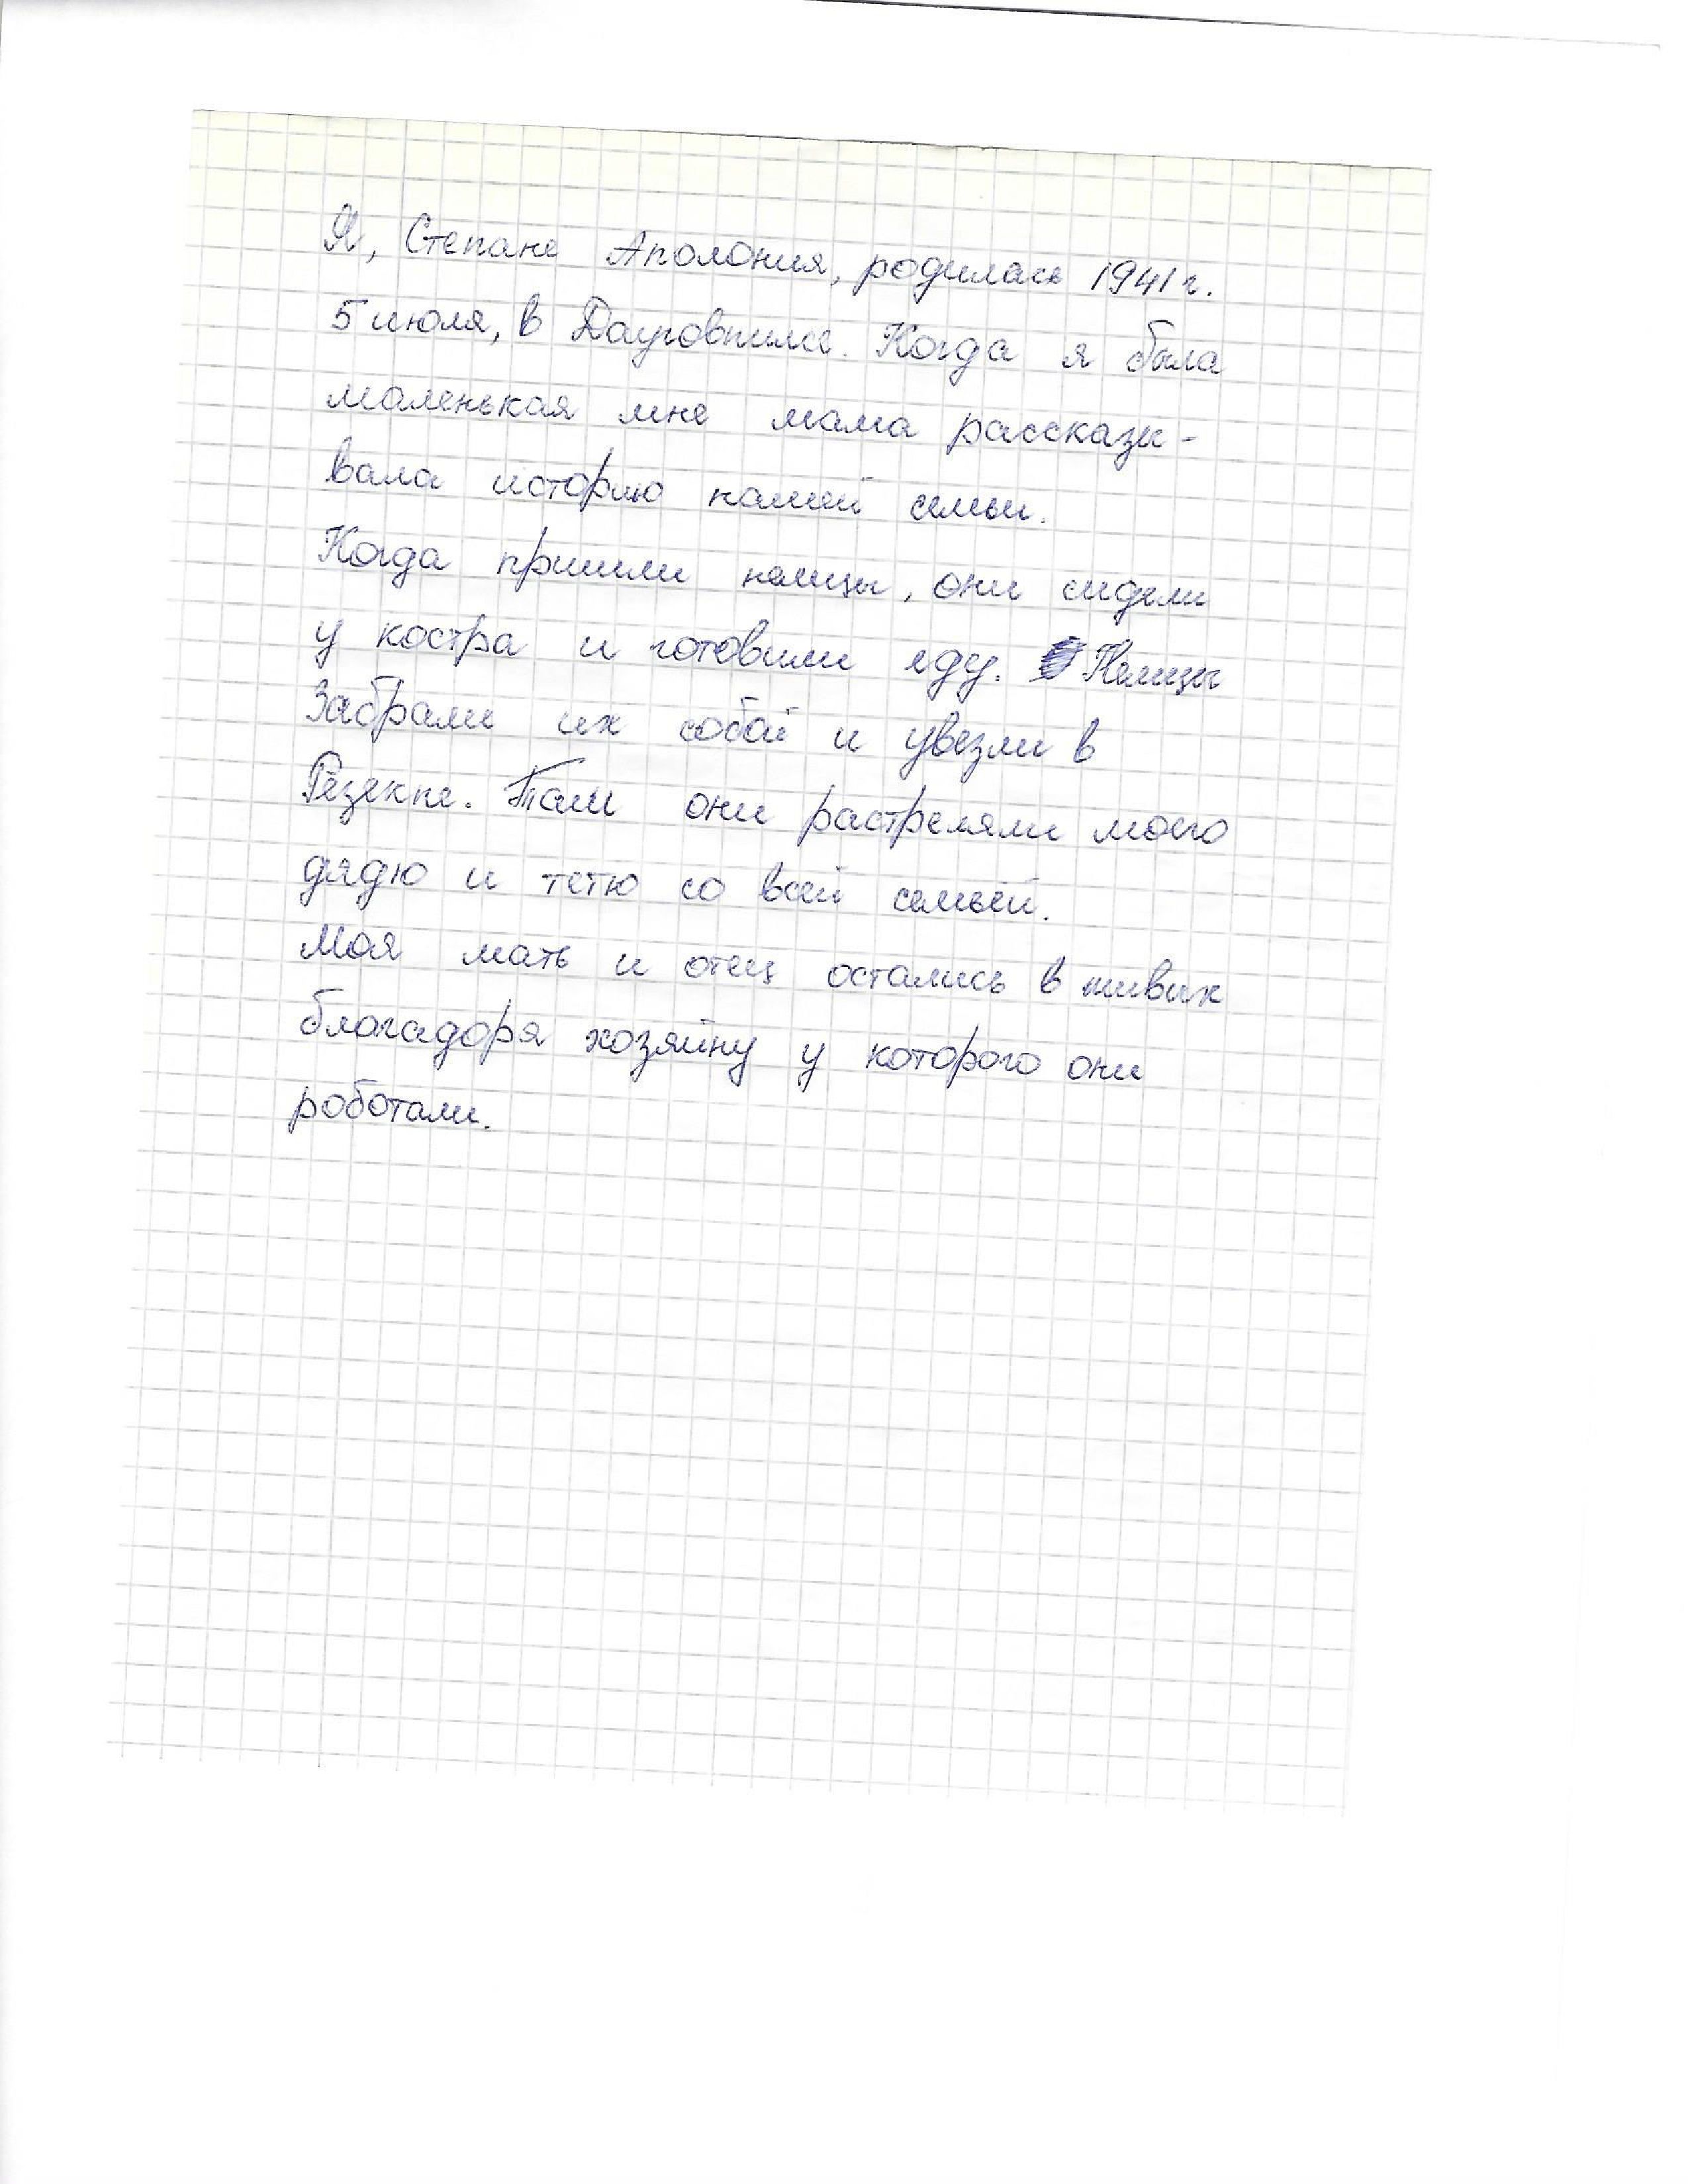 Я, Степане Аполония, родилась 1941 г.
5 июля, в Дауговпилсе. Когда я была
маленькая мне мама рассказы-
вала историю нашей семьи.
Когда пришли немцы, они сидели
у костра и готовили еду. Немцы
Забрали их собой и увезли в
Резекне. Там они растреляли моего
дядю и тетю со всей семьей.
Моя мать и отец остались в живых
благадоря хозяйну у которого они
роботали.